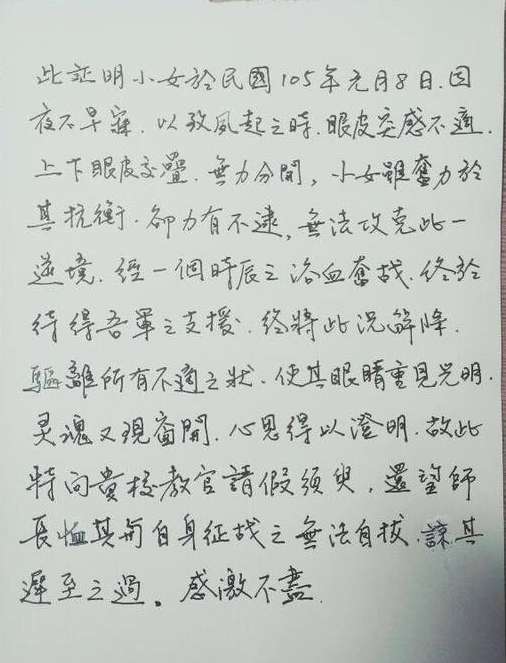 此証明小女於民國105年元月8日.因
夜不早寐.以致風起之時.眼皮突感不適.
上下眼皮交疊.無力分開,小女雖奮力於
其抗衡.卻力有不逮,無法攻克此一
逆境.經一個時辰之浴血奮战.終於
待得吾軍之支援.終將此況解降.
驅離所有不適之狀.使其眼睛重見光明.
灵魂又現窗開.心思得以澄明.故此
特向貴校教官請假須臾,還望師
長恤其前自身征战之無法自拔.諒其
遲至之過。感激不盡.